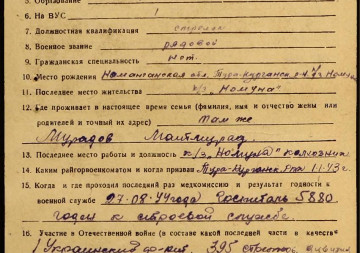 5. Образование
6. На ВУС 1
7. Должностная квалификация стрелок
8. Военное звание рядовой
9. Гражданская специальность нет.
10. Место рождения Наманганская обл. Тура-Курганск. р-н
11. Последнее место жительства к/з "Комуна"
12. Где проживает в настоящее время семья (фамилия, имя и отчество жены или
родителей и точный их адрес) там же
Мурадов
13. Последнее место работы и должность к/з "Комуна" колхозник
14. Каким райгорвоенкоматом и когда призван Тура-Курганск. Рвк 11.43 г.
15. Когда и где проходил последний раз медкомиссию и результат годности к
военной службе 27.08.44 года Госпиталь 5880
годен к строевой службе.
16. Участие в Отечественной войне (в составе какой последней части и в качестве
1 Украинский фронт, 395 стрелков. дивизия